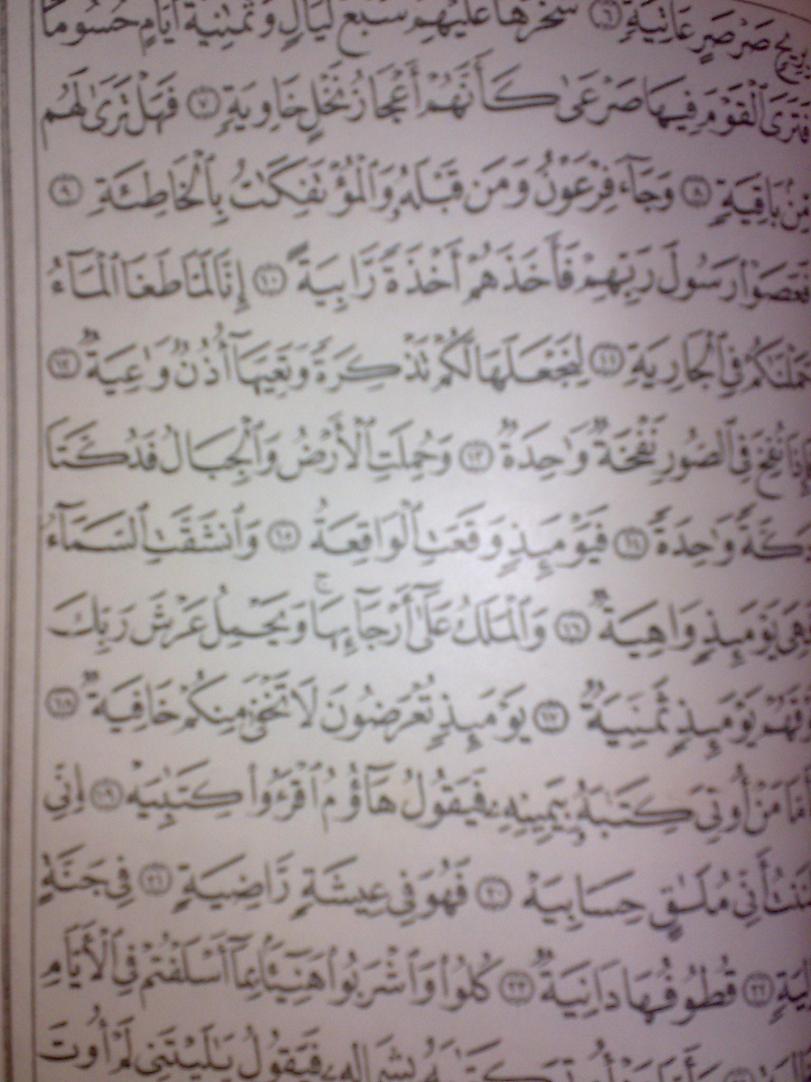 بِرِيحٍ صَرْصَرٍ عَاتِيَةٍ ٦ سَخَّرَهَا عَلَيْهِمْ سَبْعَ لَيَالٍ وَثَمَٰنِيَةَ أَيَّامٍ حُسُومًا
فَتَرَى ٱلْقَوْمَ فِيهَا صَرْعَىٰ كَأَنَّهُمْ أَعْجَازُ نَخْلٍ خَاوِيَةٍ ٧ فَهَلْ تَرَىٰ لَهُم
مِّنۢ بَاقِيَةٍ ٨ وَجَآءَ فِرْعَوْنُ وَمَن قَبْلَهُۥ وَٱلْمُؤْتَفِكَٰتُ بِٱلْخَاطِئَةِ ٩
فَعَصَوْا۟ رَسُولَ رَبِّهِمْ فَأَخَذَهُمْ أَخْذَةً رَّابِيَةً ١٠ إِنَّا لَمَّا طَغَا ٱلْمَآءُ
حَمَلْنَٰكُمْ فِى ٱلْجَارِيَةِ ١١ لِنَجْعَلَهَا لَكُمْ تَذْكِرَةً وَتَعِيَهَآ أُذُنٌ وَٰعِيَةٌ ١٢
فَإِذَا نُفِخَ فِى ٱلصُّورِ نَفْخَةٌ وَٰحِدَةٌ ١٣ وَحُمِلَتِ ٱلْأَرْضُ وَٱلْجِبَالُ فَدُكَّتَا
دَكَّةً وَٰحِدَةً ١٤ فَيَوْمَئِذٍ وَقَعَتِ ٱلْوَاقِعَةُ ١٥ وَٱنشَقَّتِ ٱلسَّمَآءُ
فَهِىَ يَوْمَئِذٍ وَاهِيَةٌ ١٦ وَٱلْمَلَكُ عَلَىٰٓ أَرْجَآئِهَا ۚ وَيَحْمِلُ عَرْشَ رَبِّكَ
فَوْقَهُمْ يَوْمَئِذٍ ثَمَٰنِيَةٌ ١٧ يَوْمَئِذٍ تُعْرَضُونَ لَا تَخْفَىٰ مِنكُمْ خَافِيَةٌ ١٨
فَأَمَّا مَنْ أُوتِىَ كِتَٰبَهُۥ بِيَمِينِهِۦ فَيَقُولُ هَآؤُمُ ٱقْرَءُوا۟ كِتَٰبِيَهْ ١٩ إِنِّى
ظَنَنتُ أَنِّى مُلَٰقٍ حِسَابِيَهْ ٢٠ فَهُوَ فِى عِيشَةٍ رَّاضِيَةٍ ٢١ فِى جَنَّةٍ
عَالِيَةٍ ٢٢ قُطُوفُهَا دَانِيَةٌ ٢٣ كُلُوا۟ وَٱشْرَبُوا۟ هَنِيٓـًٔۢا بِمَآ أَسْلَفْتُمْ فِى ٱلْأَيَّامِ
كِتَٰبَهُۥ بِشِمَالِهِۦ فَيَقُولُ يَٰلَيْتَنِى لَمْ أُوتَ